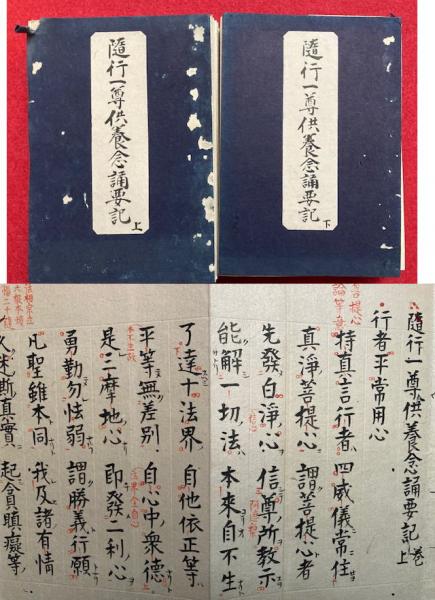 隨行一尊供養念誦要記 上
隨行一尊供養念誦要記 下
隨行一尊供養念誦要記 卷上
行者平常用心
菩提心
論等意
持真言行者 四威儀常住
真淨菩提心 謂菩提心者
先發白淨心 信尊所教示
能解一切法 本來自不生
了達十法界 自他依正等
平等無差別 自心中衆德
是三摩地心 即發二利心
勇勤勿怯弱 謂勝義行願
凡聖雖本同 我及諸有情
迷斷真實 起貪瞋癡等